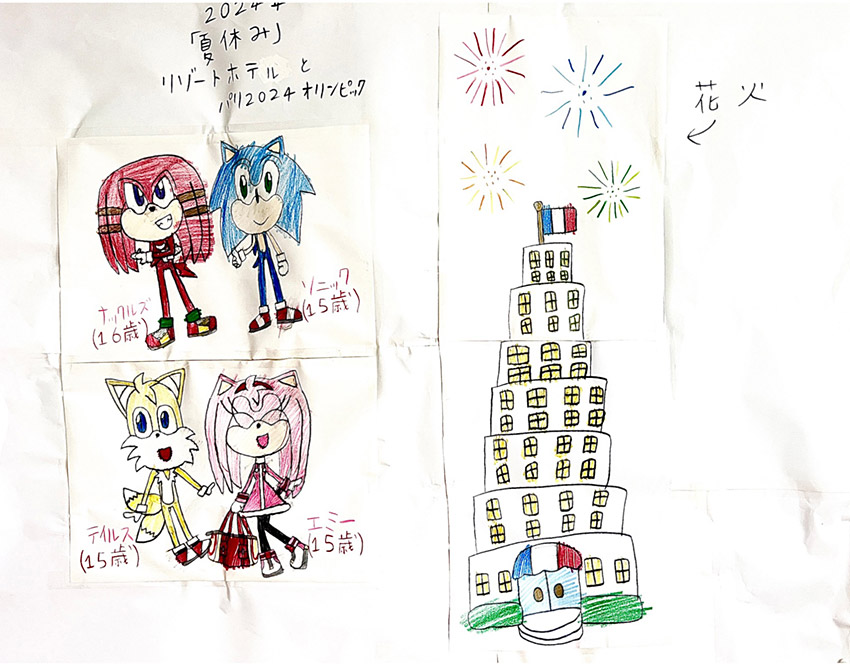 2024年
「夏休み」
リゾートホテルと
パリ2024オリンピック
花火
ナックルズ
(16歳)
ソニック
(15歳)
テイルス
(15歳)
エミー
(15歳)